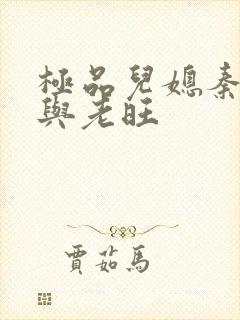 極品兒媳秦
與老旺
賈茹馬